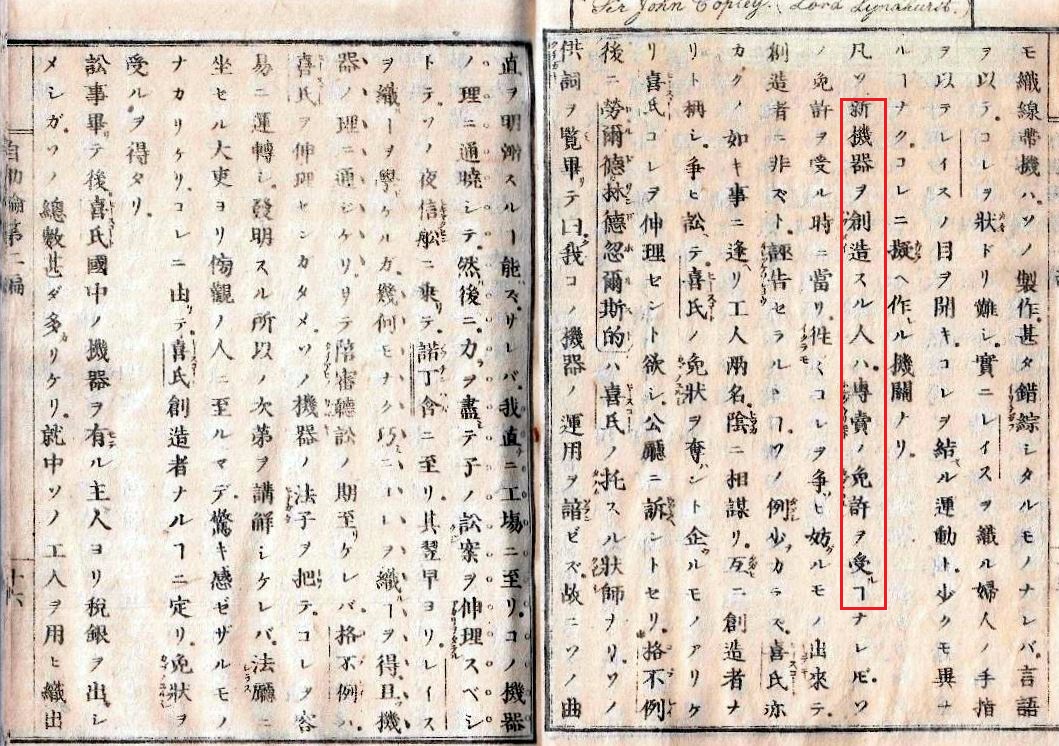 Sir John Copley. (Lord Lyndhurst.)
モ織線帶機ハソノ製作甚タ錯綜シタルモノナレバ言語
ヲ以テコレヲ狀ドリ難シ實ニレイスヲ織ル婦人ノ手指
ヲ以テレイスノ目ヲ開キコレヲ結ル運動ト少クモ異ナ
ルヿナクコレニ擬ヘ作ル機關ナリ
凡ソ新機器ヲ創造スル人ハ專賣ノ免許ヲ受ルヿナレドモソ
ノ免許ヲ受ル時ニ當リ徃々コレヲ爭ヒ妨ルモノ出來テ
創造者ニ非ズト誣告セラルヽヿソノ例少カラズ喜氏亦
カクノ如キ事ニ逢リ工人兩名陰ニ相謀リ互ニ創造者ナ
リト稱シ爭ヒ訟テ喜氏ノ免狀ヲ奪ント企ルモノアリケ
リ喜氏コレヲ伸理セント欲シ公廳ニ訴ントセリ格不例
後ニ勞爾德林德忽爾斯的ハ喜氏ノ托スル狀師ナリソノ
供詞ヲ覽畢テ曰我コノ機器ノ運用ヲ諳ゼズ故ニソノ曲
直ヲ明辯スルヿ能ズサレバ我直ニ工塲ニ至リコノ機器
ノ理ニ通曉シテ然後ニ力ヲ盡テ子ノ訟案ヲ伸理スベシ
トテソノ夜信舩ニ乘テ諾丁含ニ至リ其翌早ヨリレイス
ヲ織ヿヲ學ケルガ幾何モナク巧ニレイスヲ織ヿヲ得且機
器ノ理ニ通ジケリサテ陪審聽訟ノ期至ケレバ格不例ハ
喜氏ヲ伸理センガタメソノ機器ノ法子ヲ把テコレヲ容
易ニ運轉シ發明スル所以ノ次第ヲ講解シケレバ法廳ニ
坐セル大吏ヨリ傍觀ノ人ニ至ルマデ驚キ感ゼザルモノ
ナカリケリコレニ由テ喜氏創造者ナルヿニ定リ免狀ヲ
受ルヲ得タリ
訟事畢テ後喜氏國中ノ機器ヲ有ル主人ヨリ稅銀ヲ出シ
メシガソノ總數甚ダ多カリケリ就中ソノ工人ヲ用ヒ織出
自助論第二編
十六